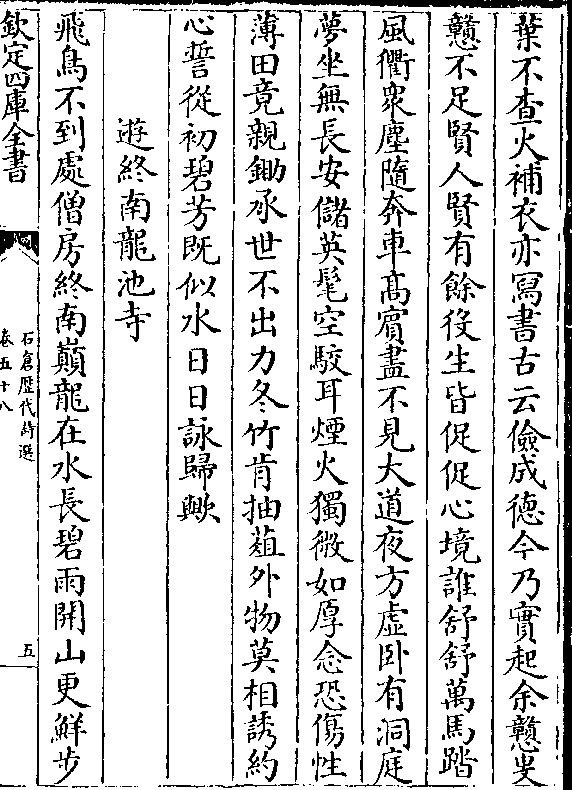 葉不查火補衣亦寫書古云儉成德今乃實起余戇叟
戇不足賢人賢有餘役生皆促促心境誰舒舒萬馬踏
風衢衆塵隨奔車髙賓盡不見大道夜方虛卧有洞庭
夢坐無長安儲英髦空駿耳煙火獨微如厚念恐傷性
薄田竟親鋤承世不出力冬竹肯抽菹外物莫相誘約
心誓從初碧芳既似水日日詠歸歟
遊終南龍池寺
飛鳥不到處僧房終南巔龍在水長碧雨開山更鮮步
欽定四庫全書
石倉歷代詩選
卷五十八
五